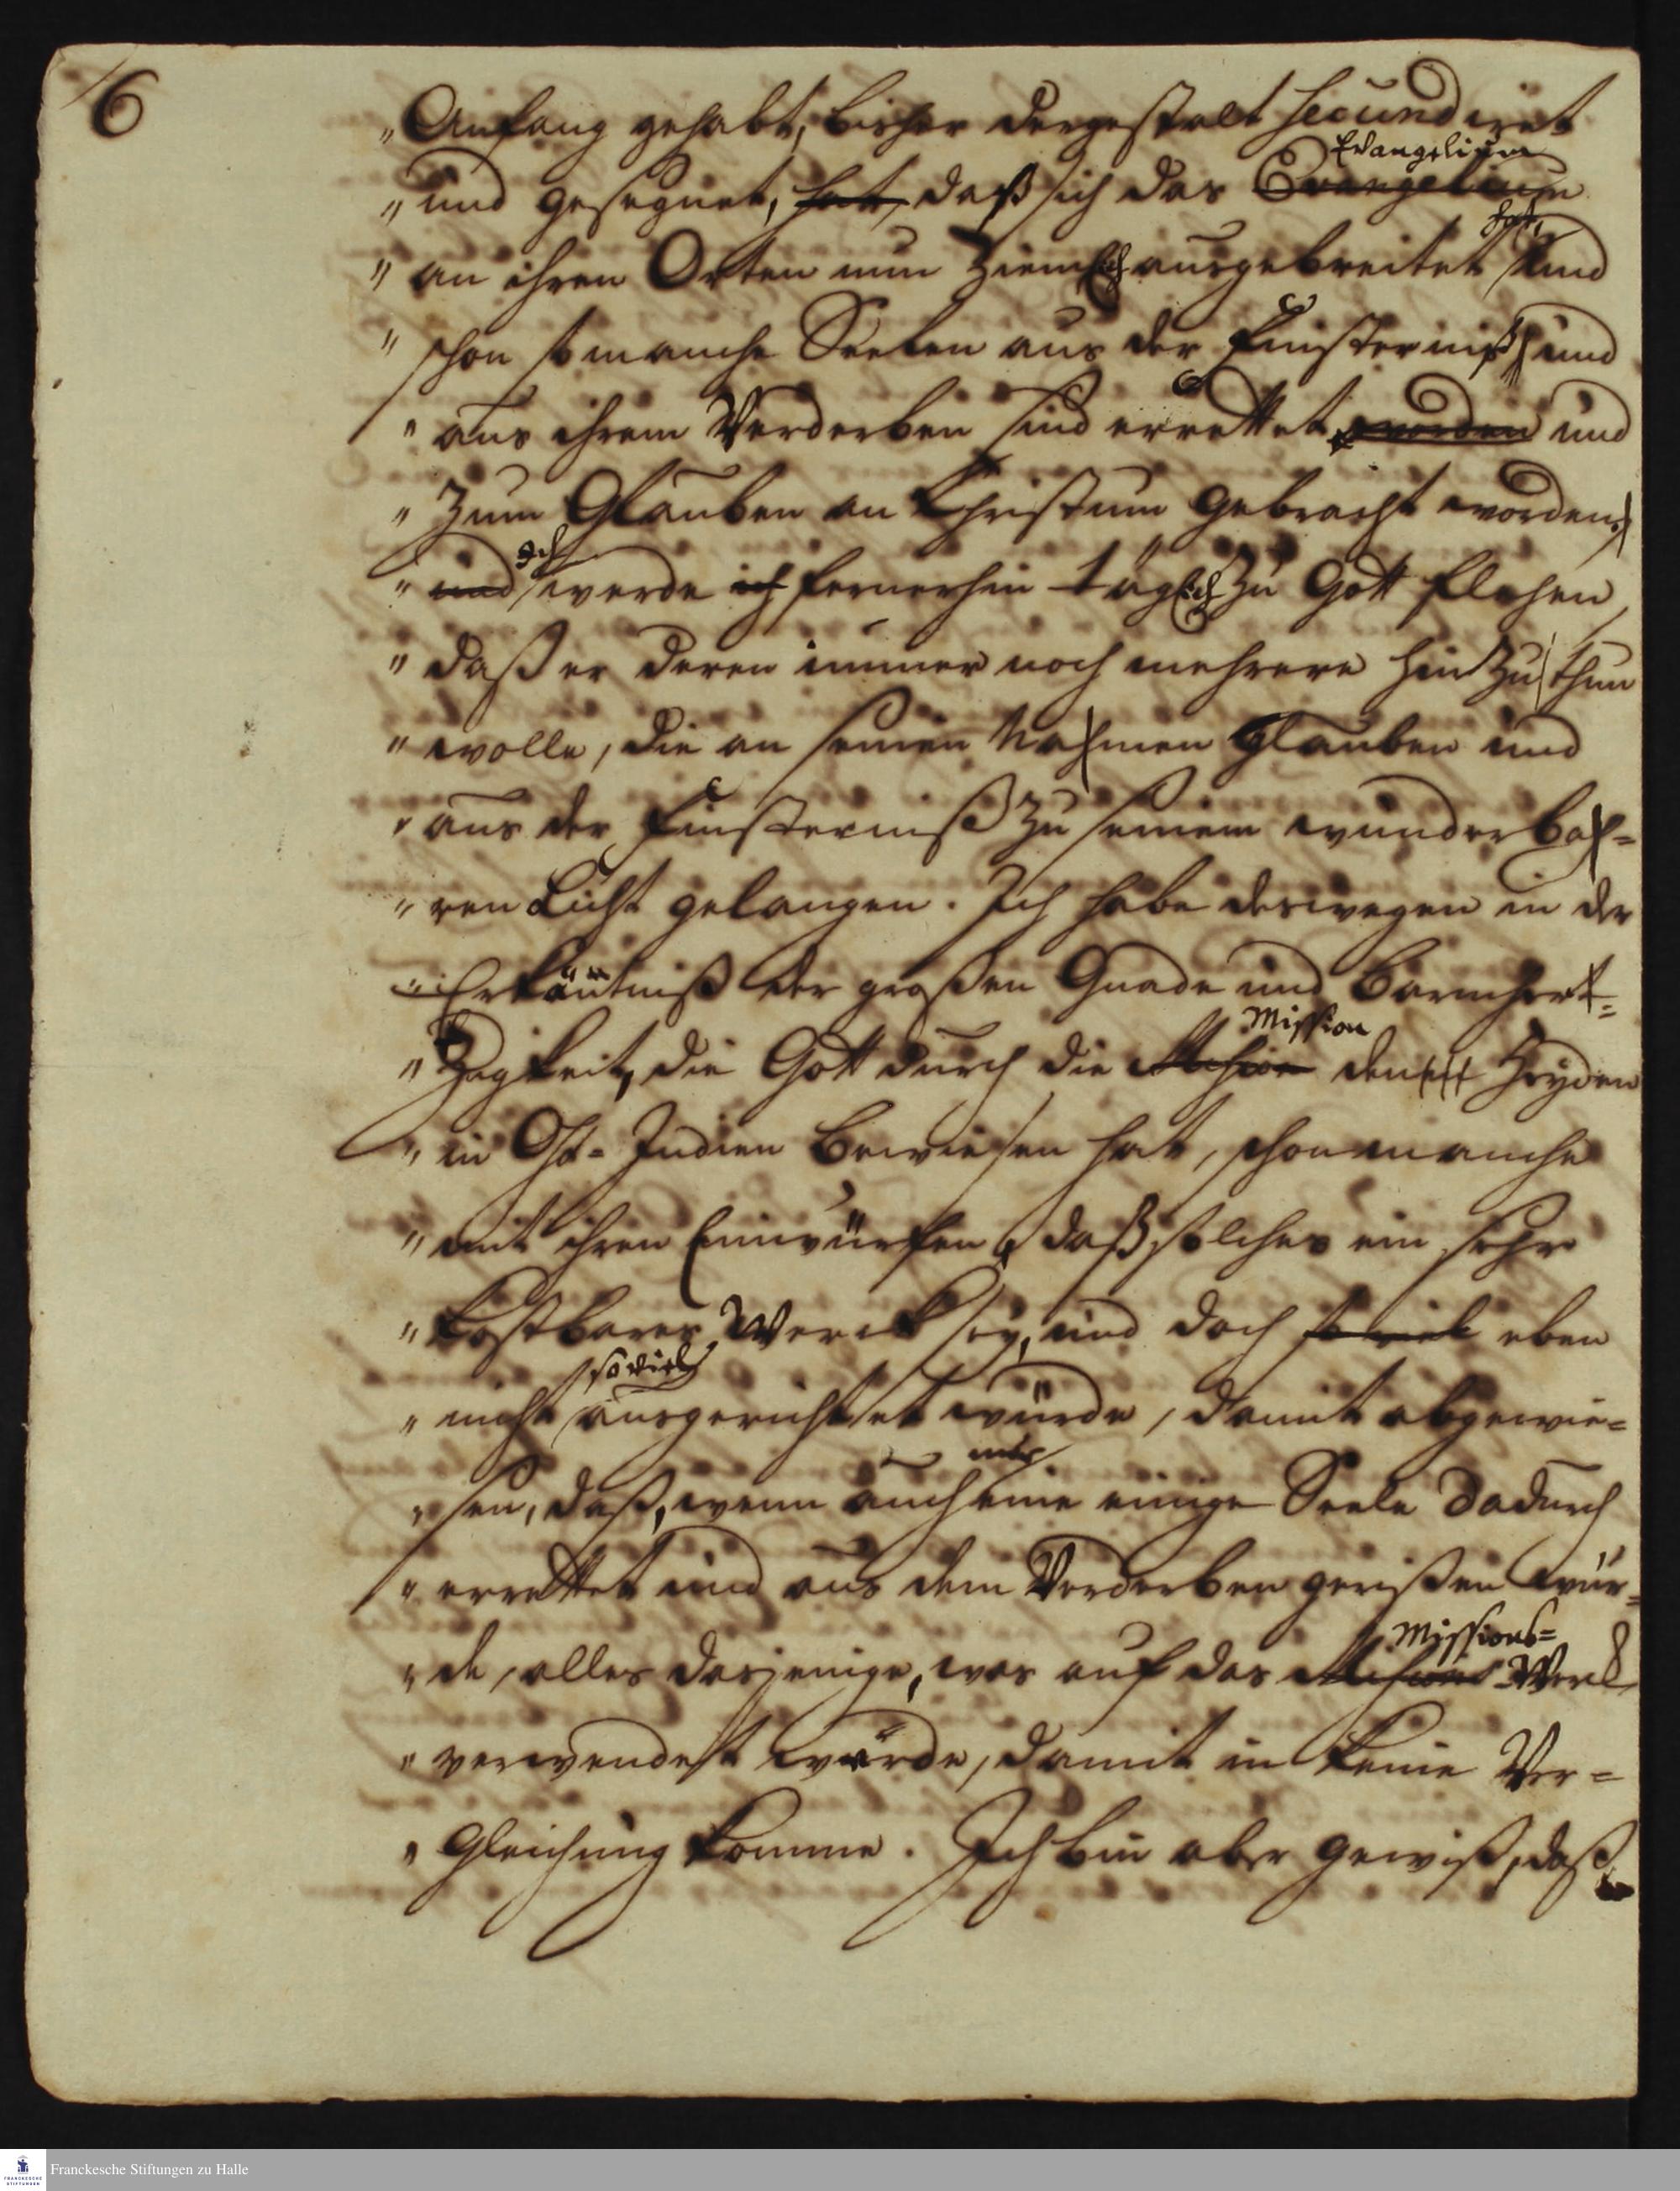 6
„ Anfang gehabt, bisher dergestalt secundiret
Evangelium
„ und gesegnet, hat, daß sich das Evangelium
hat,
„ an ihren Orten nun ziemlich ausgebreitet und
„ schon so manche Seelen aus der Finsterniß und
„ aus ihrem Verderben sind errettet worden und
„ zum Glauben an Christum gebracht worden.
Ich
„ und werde ich fernerhin täglich zu Gott flehen,
„ daß er deren immer noch mehrere hinzu thun
„ wolle, die an seinen Nahmen glauben und
„ aus der Finsterniß zu seinem wunderbah=
„ ren Licht gelangen. Ich habe deswegen in der
„ Erkäntniß der großen Gnade und Barmhert=
Mission
„ zigkeit, die Gott durch die Mission den Heyden
„ in Ost-Indien bewiesen hat, schon manche
„ mit ihren Einwürfen, daß solches ein sehr
„ kostbares Werck sey, und doch so viel eben
so viel
„ nicht ausgerichtet würde, damit abgewie=
nur
„ sen, daß, wenn auch eine einige Seele dadurch
„ errettet und aus dem Verderben gerißen wür=
Missions=
„ de, alles dasjenige, was auf das Missions Werk
„ verwendet würde, damit in keine Ver=
„ gleichung komme. Ich bin aber gewiß, daß
Franckesche Stiftungen zu Halle